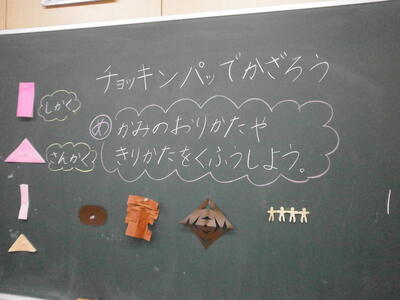 チョッキンパッでかざろう
しかく
め かみのおりかたや
きりかたをくふうしよう。
さんかく